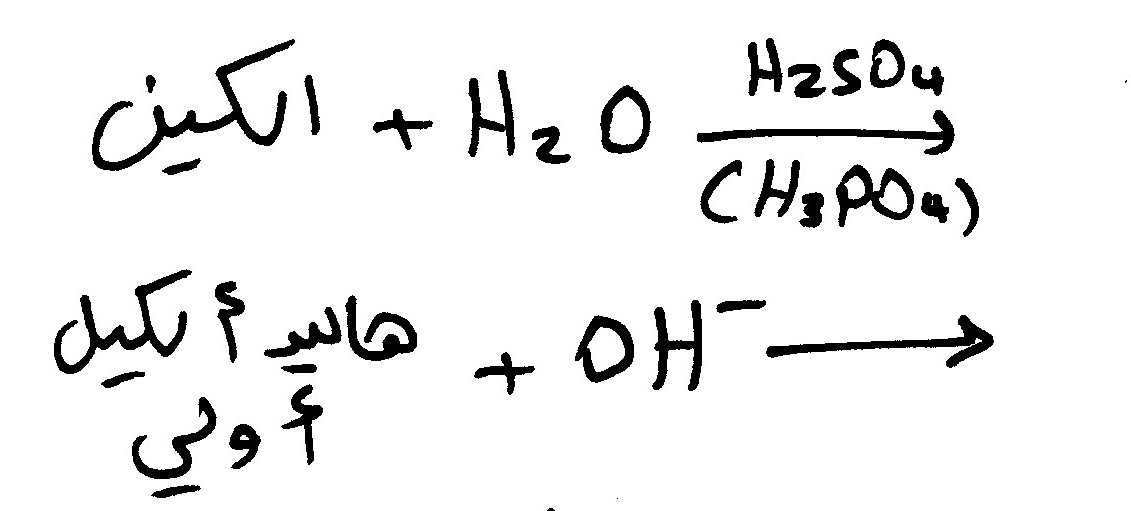 الكين + H2O ⟶ H2SO4 (H3PO4)
هاليد أكيل أولي + OH⁻ ⟶